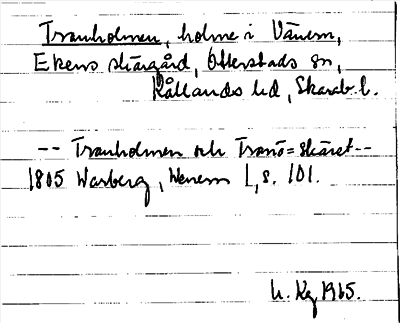 Tranholmen, holme i Vänern,
Ekens skärgård, Otterstads sn,
Kållands hd, Skarab. l.
-- Tranholmen och Tranö=skäret --
1805 Warberg, Wenern I, s. 101.
1965.